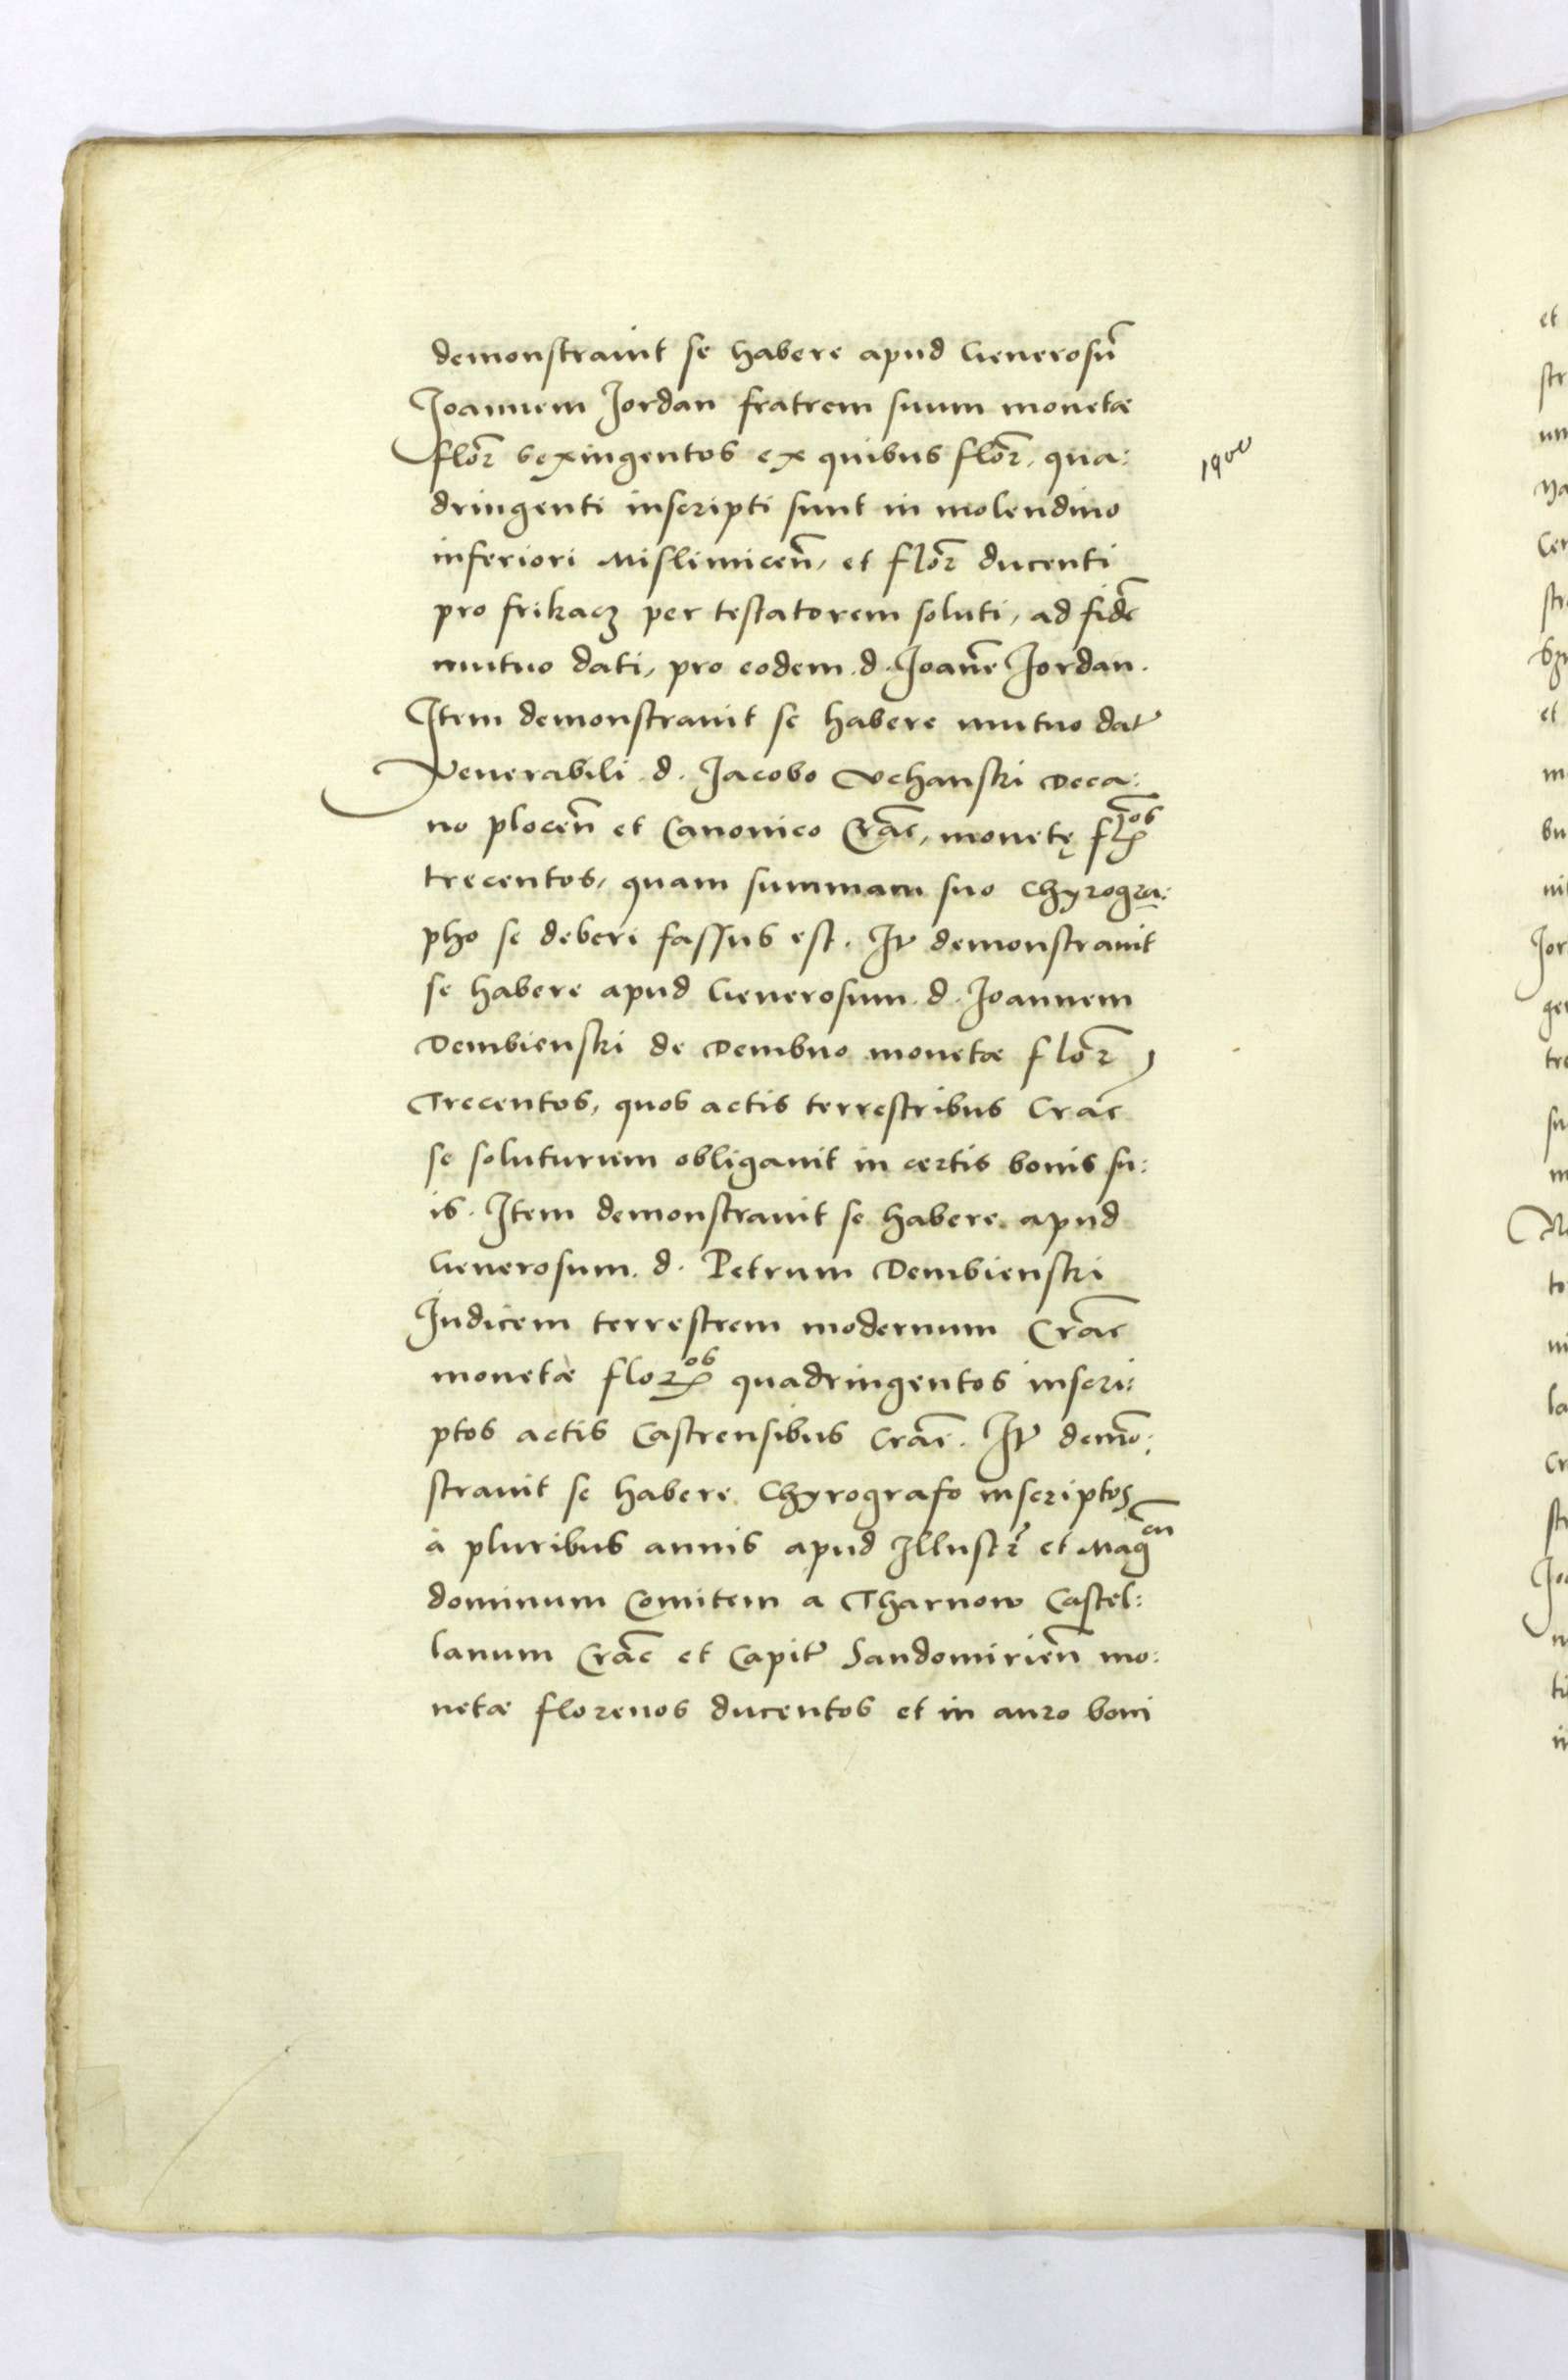 demonstrauit se habere apud Generosū
Joannem Jordan fratrem suum monetæ
flor̄ sexingentos ex quibus flor̄. qua:
1900
dringenti inscripti sunt in molendino
inferiori Mislimiceñ, et flor̄ ducenti
pro frikacz per testatorem soluti, ad fidē
mutuo dati, pro eodem d. Joan̄e Jordan.
Item demonstrauit se habere mutuo dat̄
Venerabili d. Jacobo Vchanski Deca:
no ploceñ et Canonico Crac̄, monetę fl̄os
trecentos, quam summam suo chyrogra:
pho se deberi fassus est. It̄ demonstrauit
se habere apud Generosum d. Joannem
Dembienski de Dembno monetæ flor̄
Trecentos, quos actis terrestribus Crac̄
se soluturum obligauit in certis bonis su:
is. Item demonstrauit se habere apud
Generosum d. Petrum Dembienski
Judicem terrestrem modernum Crac̄
monetæ floros quadringentos inscri:
ptos actis Castrensibus Crac̄. It̄ demō:
strauit se habere Chyrografo inscriptos
à pluribus annis apud Illustr̄ et Magcū
dominum Comitem a Tharnow Castel:
lanum Crac̄ et Capit̄ Sandomirieñ mo:
netæ florenos ducentos et in auro boni